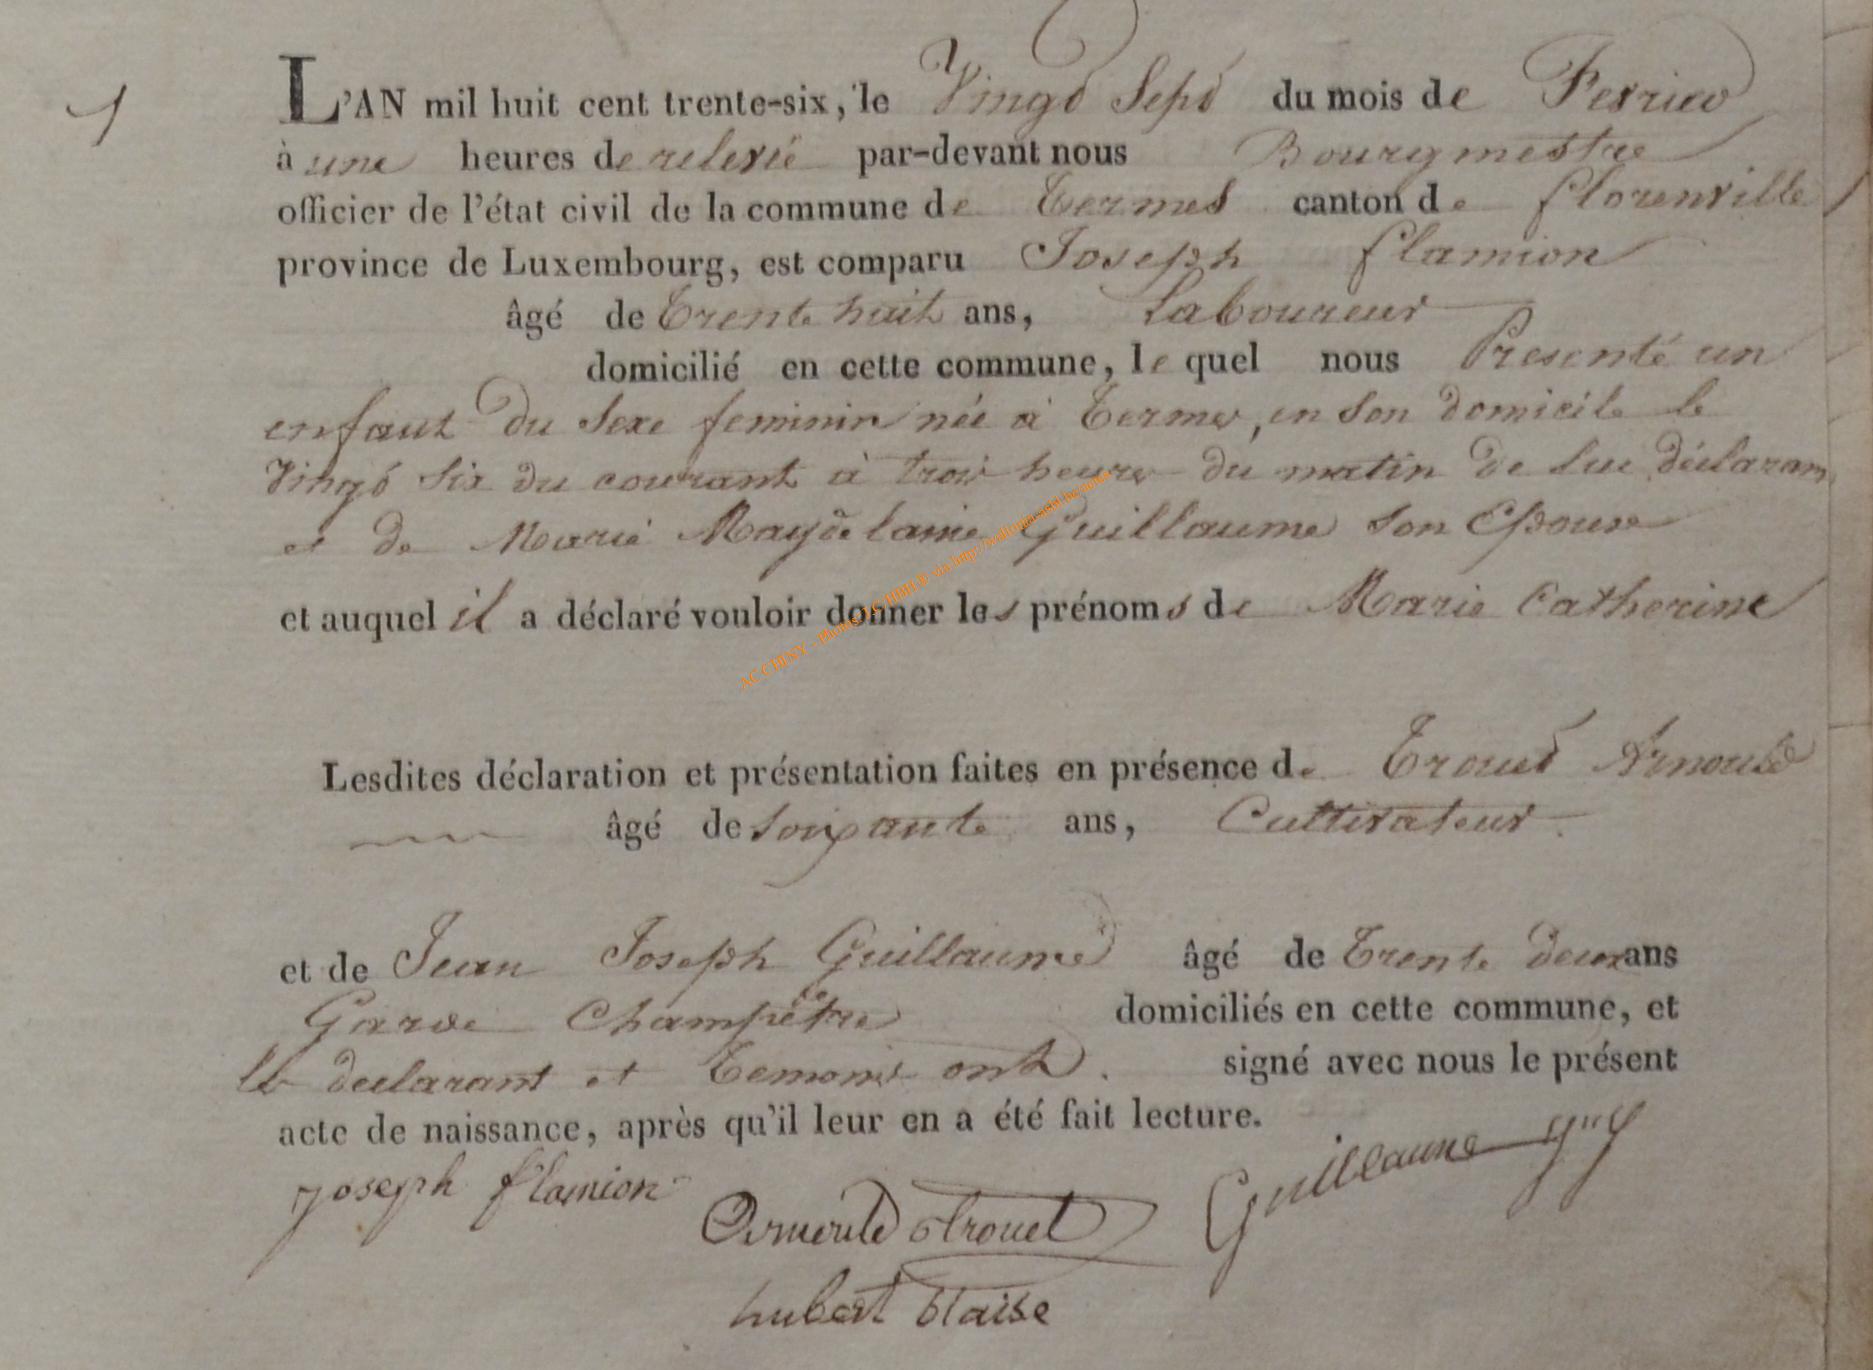 1
L'AN mil huit cent trente-six, le Vingt Sept du mois de Fevrier
à une heures de relevée par-devant nous Bourgmestre
officier de l'état civil de la commune de Termes canton de florenville
province de Luxembourg, est comparu Joseph flamion
âgé de Trente huit ans, Laboureur
domicilié en cette commune, le quel nous Presenté un
enfant du Sexe feminin née à Termes, en Son domicile le
Vingt Six du courant à trois heures du matin de lui déclarant
et de Marie Magdelaine Guillaume Son Epouse
et auquel il a déclaré vouloir donner les prénoms de Marie Catherine
Lesdites déclaration et présentation faites en présence de Trouet Arnould
âgé de Soixante ans, Cultivateur
et de Jean Joseph Guillaume âgé de Trente deux ans
Garde Champêtre domiciliés en cette commune, et
le declarant et Temoins ont signé avec nous le présent
acte de naissance, après qu'il leur en a été fait lecture.
joseph flamion
Arnould trouet
Guillaume
hubert blaise
AC CHINY - Photos via